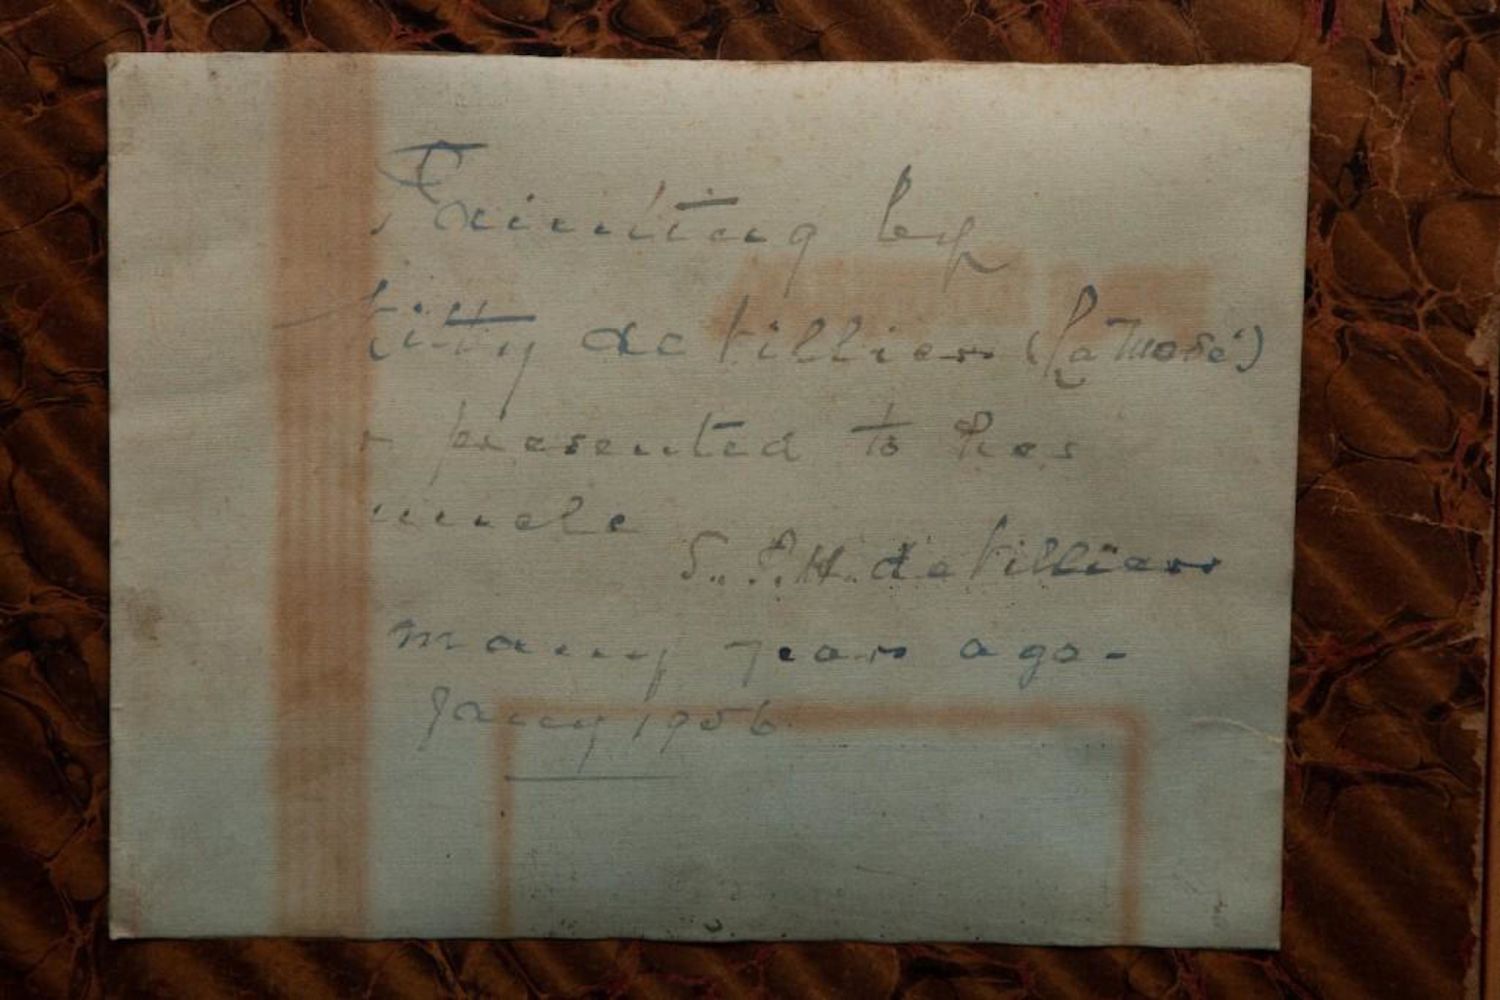 Painting by
Kitty de Villiers (
& presented to her
uncle
S. P. H. de Villiers
many years ago -
Jany 1956